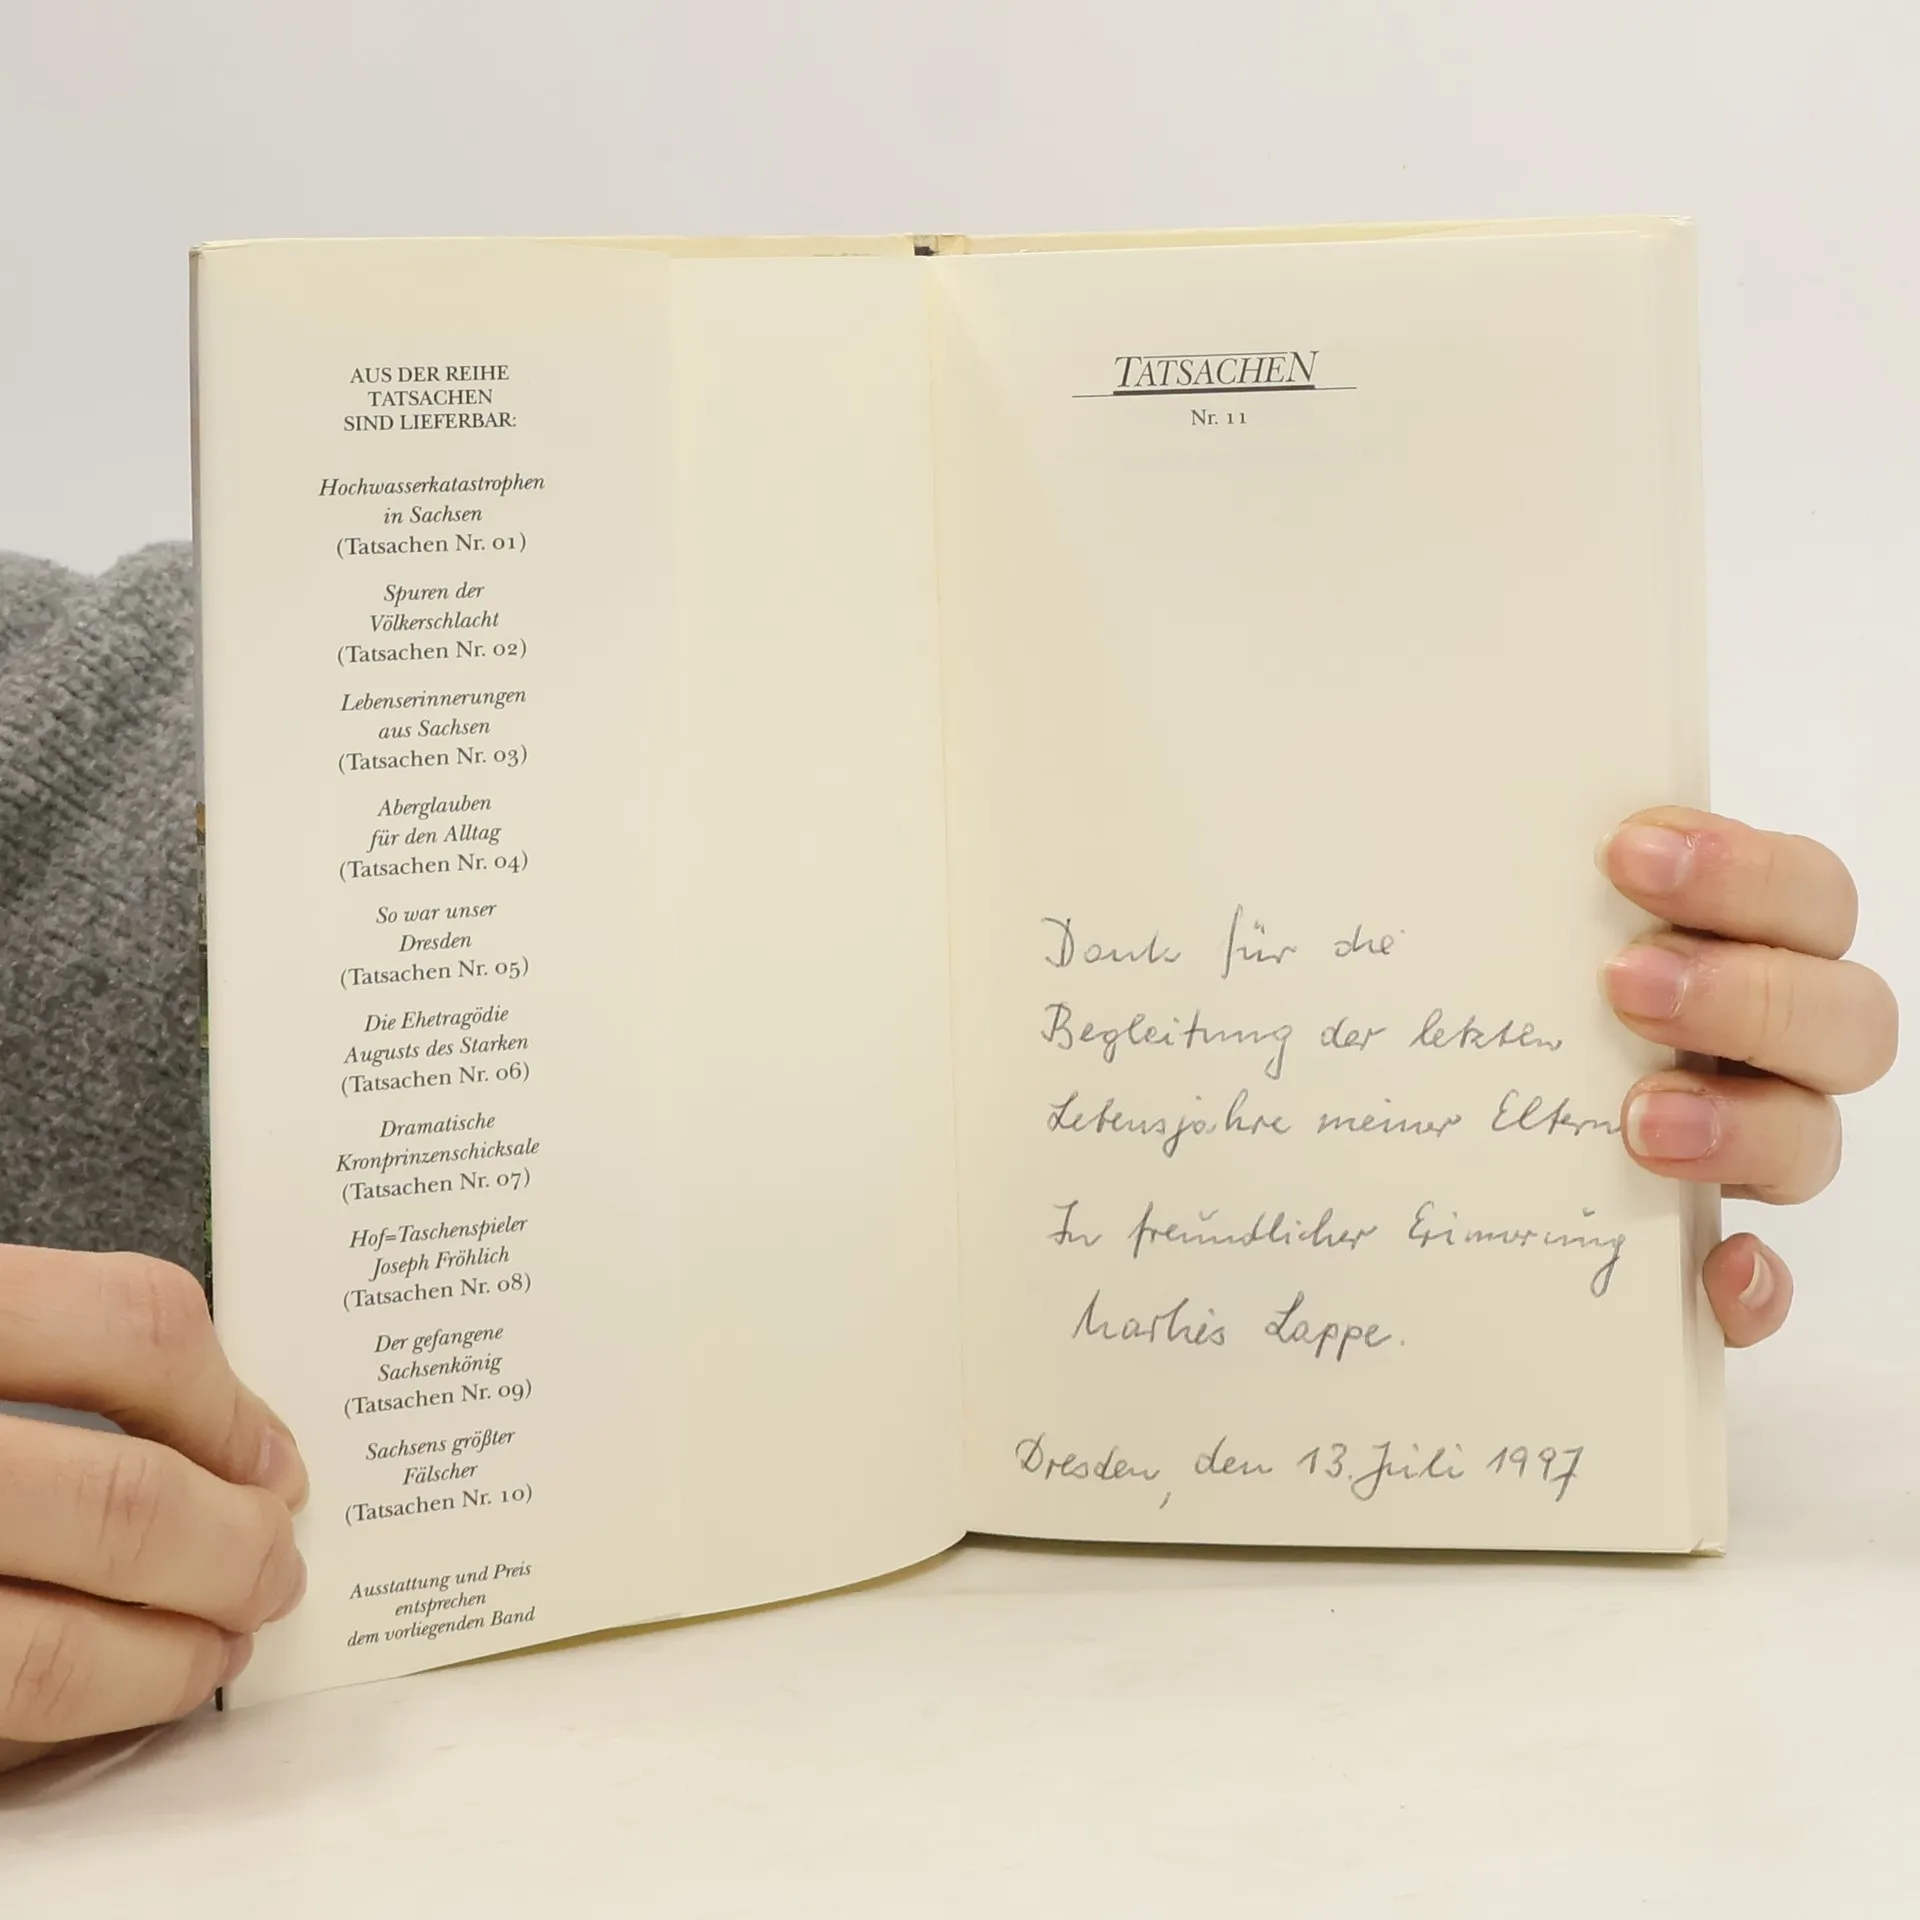 AUS DER REIHE
TATSACHEN
SIND LIEFERBAR:
Hochwasserkatastrophen
in Sachsen
(Tatsachen Nr. 01)
Spuren der
Völkerschlacht
(Tatsachen Nr. 02)
Lebenserinnerungen
aus Sachsen
(Tatsachen Nr. 03)
Aberglauben
für den Alltag
(Tatsachen Nr. 04)
So war unser
Dresden
(Tatsachen Nr. 05)
Die Ehetragödie
Augusts des Starken
(Tatsachen Nr. 06)
Dramatische
Kronprinzenschicksale
(Tatsachen Nr. 07)
Hof=Taschenspieler
Joseph Fröhlich
(Tatsachen Nr. 08)
Der gefangene
Sachsenkönig
(Tatsachen Nr. 09)
Sachsens größter
Fälscher
(Tatsachen Nr. 10)
Ausstattung und Preis
entsprechen
dem vorliegenden Band
TATSACHEN
Nr. 11
Dank für die
Begleitung der letzten
Lebensjahre meiner Eltern
In freundlicher Erinnerung
Marlies Lappe.
Dresden, den 13. Juli 1997